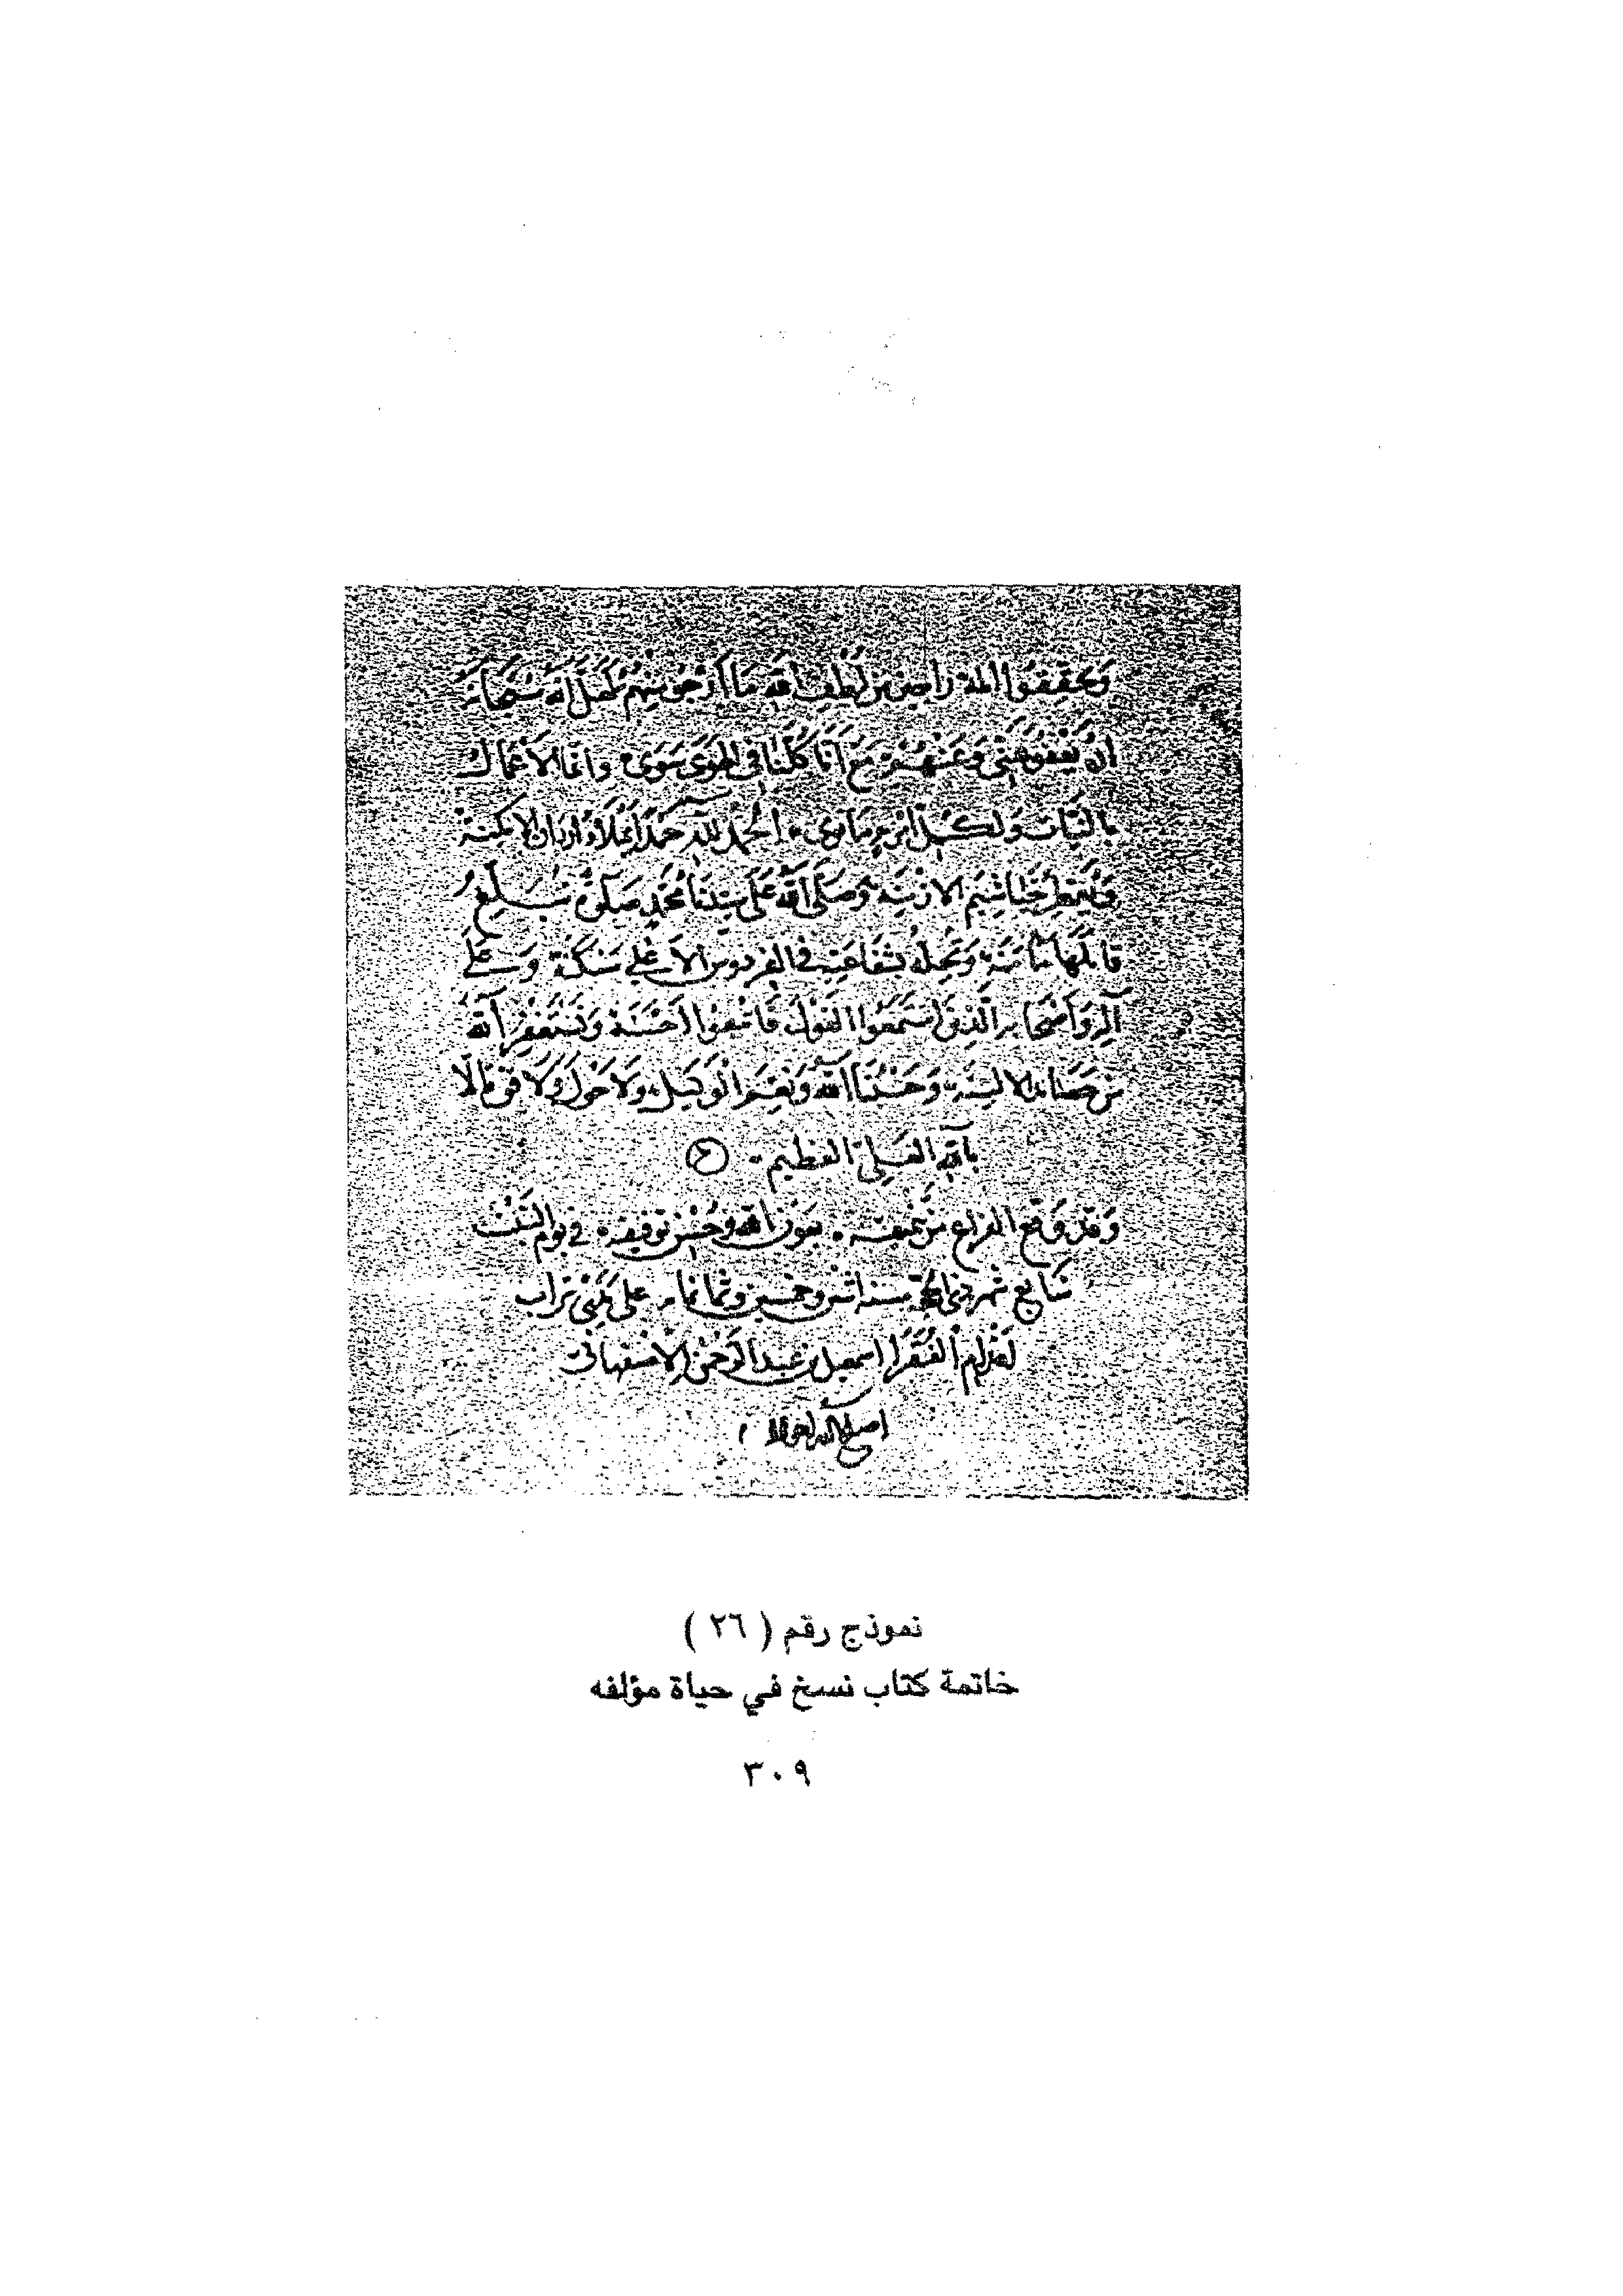 وَتحققوا الله راجين من لطف الله مَا أرجو منهم لعَلّ الله سُبحَانَهُ
أن يَعفو عَنّي وَعَنهُم مَع أنّا كُلّنا في الهَوَى سَوَى وانما الاعمال
بالنيات ولكل امرئ ما نوى الحمد لله حمدا يملأ اردان الامكنة
وَيُعَطِّر خيَاشيم الازمنة وَصَلّى الله عَلى سَيّدنَا مُحَمّد صَلَوة تُبَلّغ
قائلها مَأمَنَهُ وتحله بشفاعته في الفردوس الأعلى مسكنه وَعَلى
آله وأصحابه الّذين استَمَعُوا القول فاتبعوا أحسنه وَنَستَغفِرُ الله
من حصَائد الالسنة وَحَسبُنَا الله وَنِعمَ الوَكيل ولا حَول ولا قوة الا
بالله العَلي العَظيم
وَقد وَقع الفراغ من تنميقه بعَون الله وحُسن توفيقه في يوم السّبت
سَابع شهر ذي الحجة سنة اثنى وخمسين وثمانمائه على يَدَي تراب
اقدام الفُقَرَا اسمعيل بن عَبد الرّحمن الاصفهاني
اصلح الله احواله
نموذج رقم ( ٢٦ )
خاتمة كتاب نسخ في حياة مؤلفه
٣٠٩